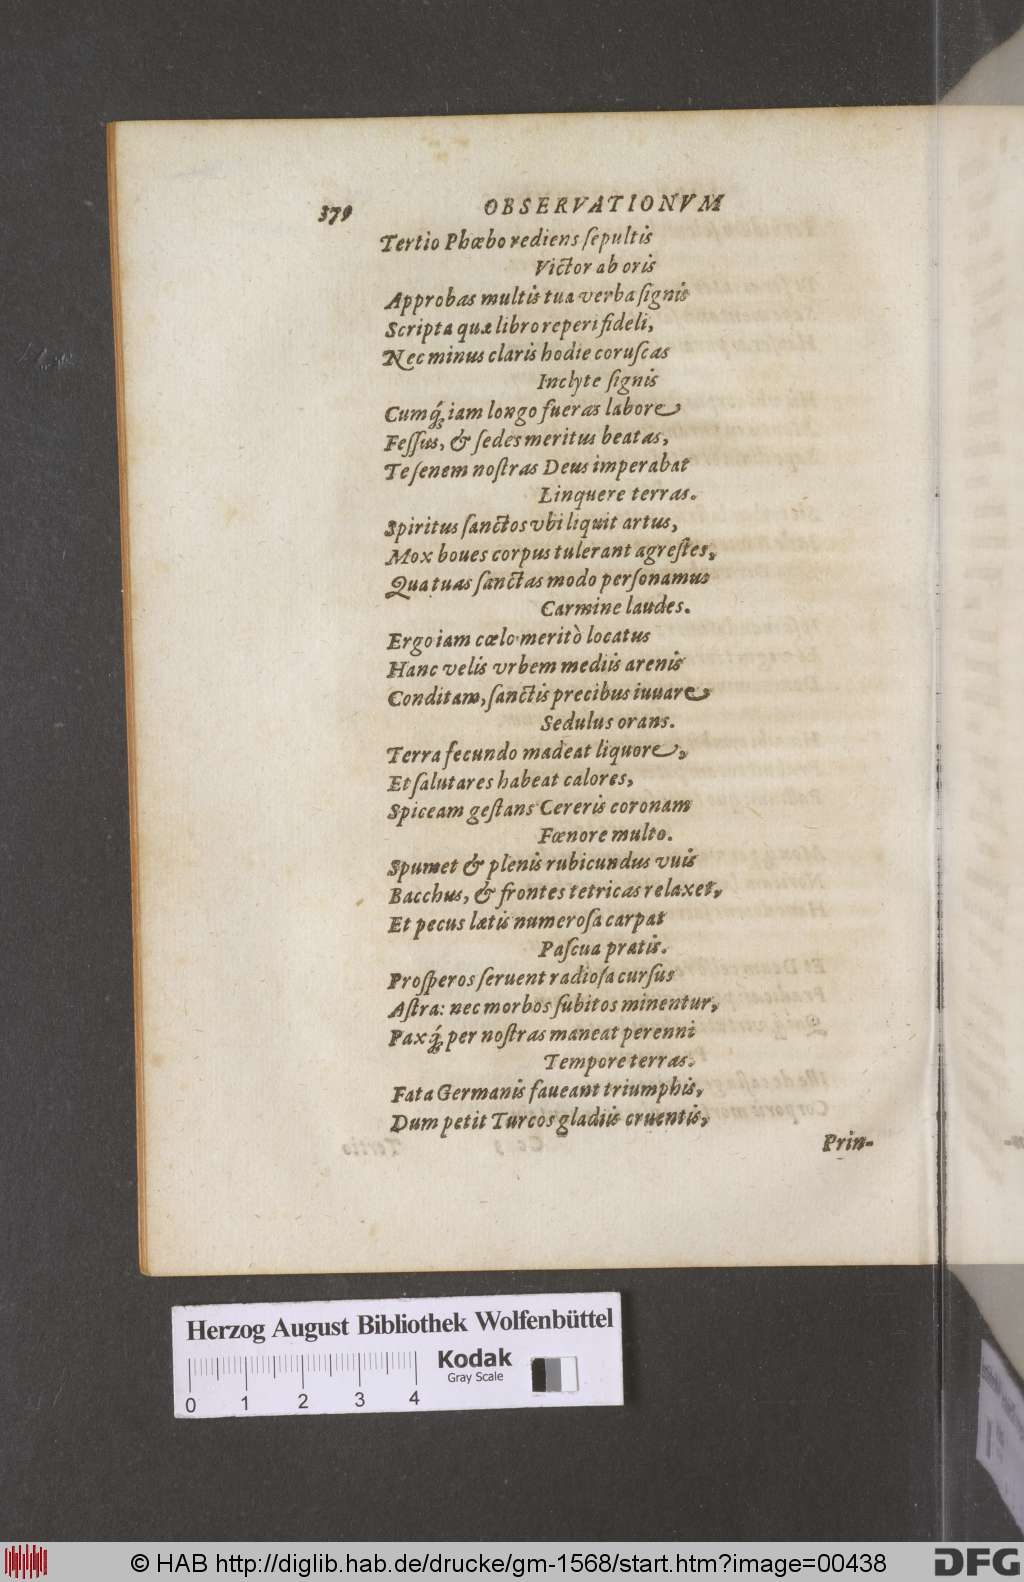 379 OBSERVATIONVM
Tertio Phœbo rediens ſepultis
Victor ab oris
Approbas multis tua verba ſignis
Scripta quæ libro reperi fideli,
Nec minus claris hodie coruſcas
Inclyte ſignis
Cumq́; iam longo fueras labore
Feſſus, & ſedes meritus beatas,
Te ſenem noſtras Deus imperabat
Linquere terras.
Spiritus ſanctos vbi liquit artus,
Mox boues corpus tulerant agreſtes,
Qua tuas ſanctas modo perſonamus
Carmine laudes.
Ergo iam cœlo meritò locatus
Hanc velis vrbem mediis arenis
Conditam, ſanctis precibus iuuare
Sedulus orans.
Terra fecundo madeat liquore,
Et ſalutares habeat calores,
Spiceam geſtans Cereris coronam
Fœnore multo.
Spumet & plenis rubicundus vuis
Bacchus, & frontes tetricas relaxet,
Et pecus lætis numeroſa carpat
Paſcua pratis.
Proſperos ſeruent radioſa curſus
Aſtra: nec morbos ſubitos minentur,
Paxq́; per noſtras maneat perenni
Tempore terras.
Fata Germanis faueant triumphis,
Dum petit Turcos gladiis cruentis,
Prin-
Herzog August Bibliothek Wolfenbüttel
Kodak
Gray Scale
0 1 2 3 4
© HAB http://diglib.hab.de/drucke/gm-1568/start.htm?image=00438
DFG